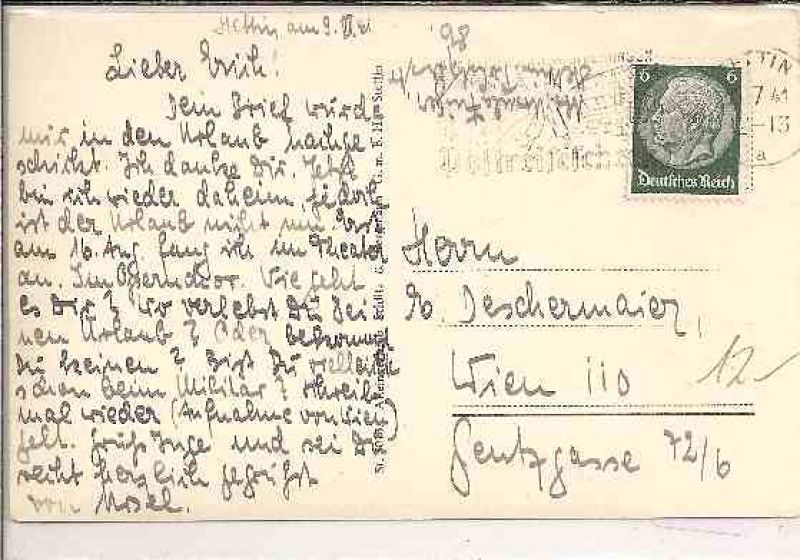 Stettin am 9. VII. 41
Lieber Erich!
Dein Brief wurde
mir in den Urlaub nachge
schickt. Ich danke Dir. Jetzt
bin ich wieder daheim, jedoch
ist der Urlaub nicht um. Erst
am 16. Aug. fang ich im Theater
an. Im Opernchor. Wie geht
es Dir? Wo verlebst Du Dei
nen Urlaub? Oder bekommst
Du keinen? Bist Du vielleicht
schon beim Militär? Schreib
mal wieder (Aufnahme von Wien)
gelt. Grüß Inge und sei Du
recht herzlich gegrüßt
von Ursel.
Ursula
Stettin
Deutsches Reich
6 6
Herrn
E. Deschermaier,
Wien 110
12
Gentzgasse 72/6